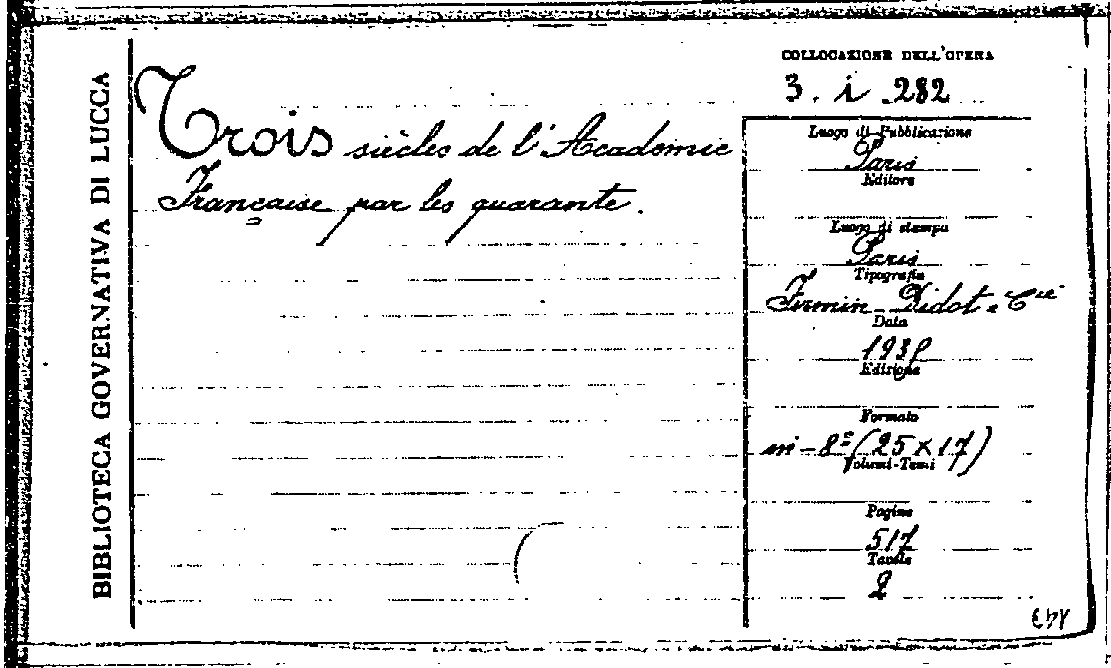 BIBLIOTECA GOVERNATIVA DI LUCCA
Trois siècles de l'Academie
Française par les quarante.
COLLOCAZIONE DELL'OPERA
3. i .282
Luogo di Pubblicazione
Paris
Editore
Luogo di stampa
Paris
Tipografia
Firmin Didot e Cie
Data
Edizione
Formato
in-8º (25 x 17)
Volumi-Tomi
Pagine
517
Tavole
2